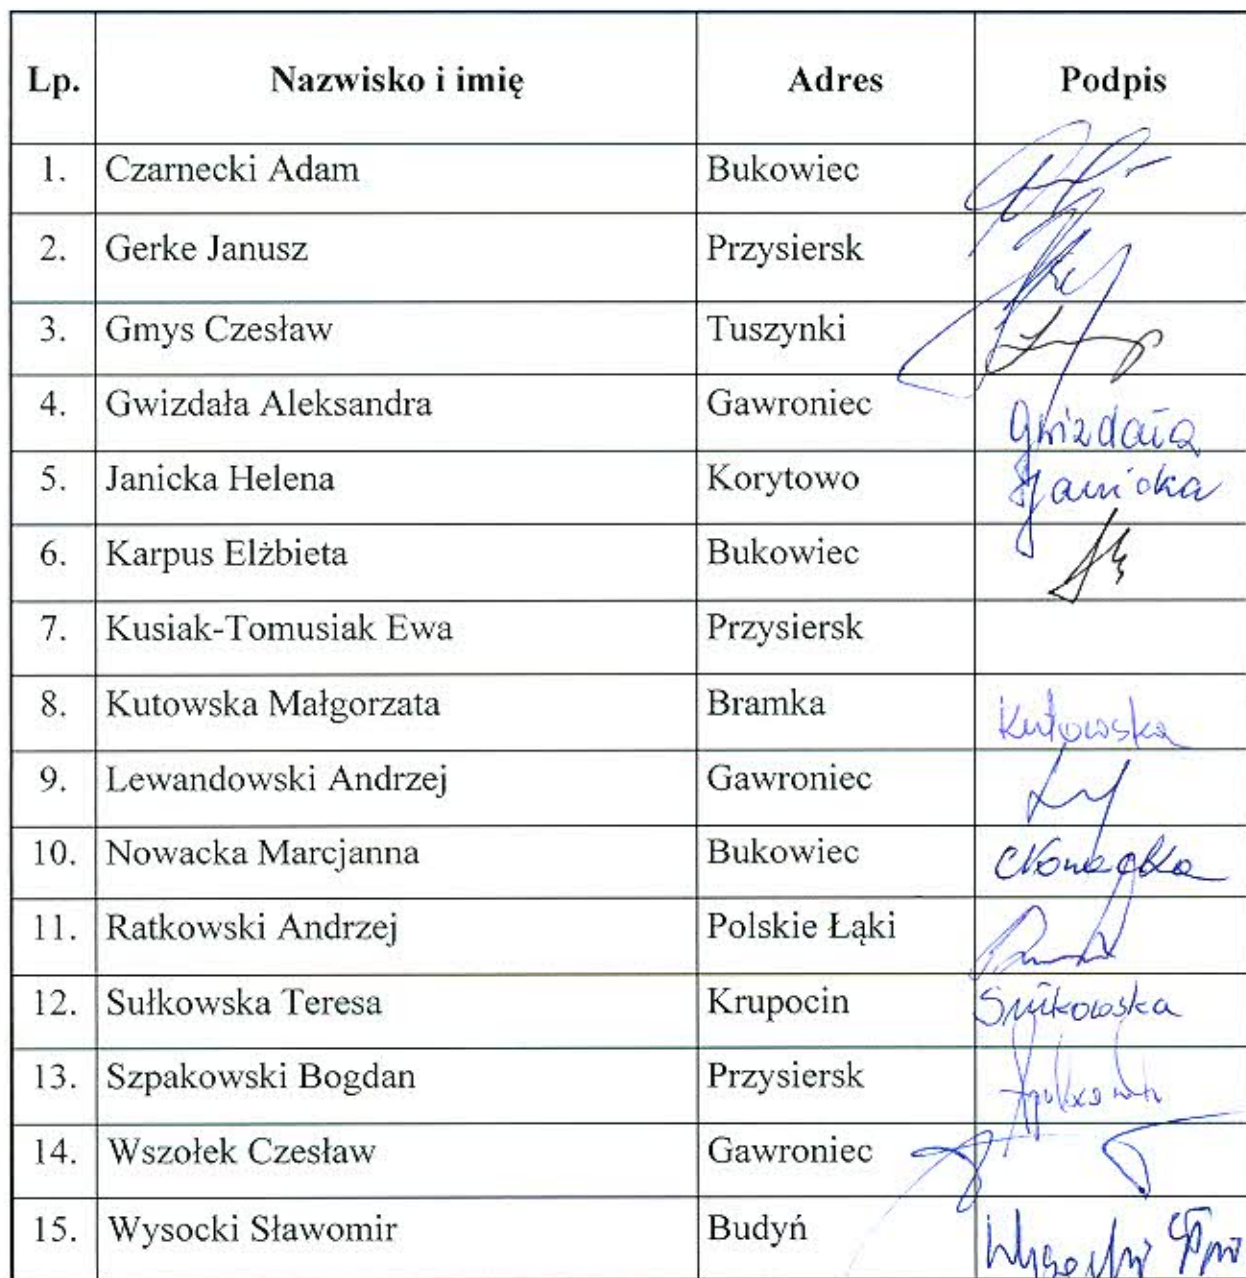 Lp. Nazwisko i imię Adres Podpis
1. Czarnecki Adam Bukowiec
2. Gerke Janusz Przysiersk
3. Gmys Czesław Tuszynki
4. Gwizdała Aleksandra Gawroniec Gwizdała
5. Janicka Helena Korytowo Janicka
6. Karpus Elżbieta Bukowiec
7. Kusiak-Tomusiak Ewa Przysiersk
8. Kutowska Małgorzata Bramka Kutowska
9. Lewandowski Andrzej Gawroniec
10. Nowacka Marcjanna Bukowiec Nowacka
11. Ratkowski Andrzej Polskie Łąki
12. Sułkowska Teresa Krupocin Sułkowska
13. Szpakowski Bogdan Przysiersk
14. Wszołek Czesław Gawroniec
15. Wysocki Sławomir Budyń Wysocki